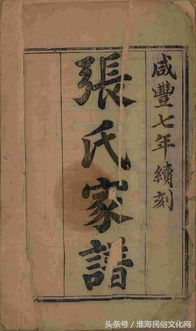 咸豐七年續刻
張氏家譜
头条号／淮海民俗文化网